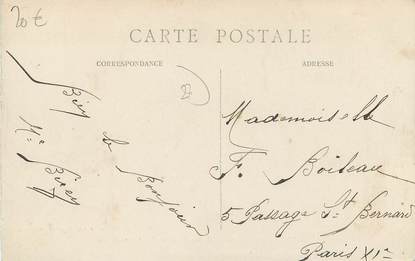 20 €
CARTE POSTALE
CORRESPONDANCE
ADRESSE
Bien le Bonjour
Mademoiselle
F. Boileau
5 Passage St Bernard
Paris XIe